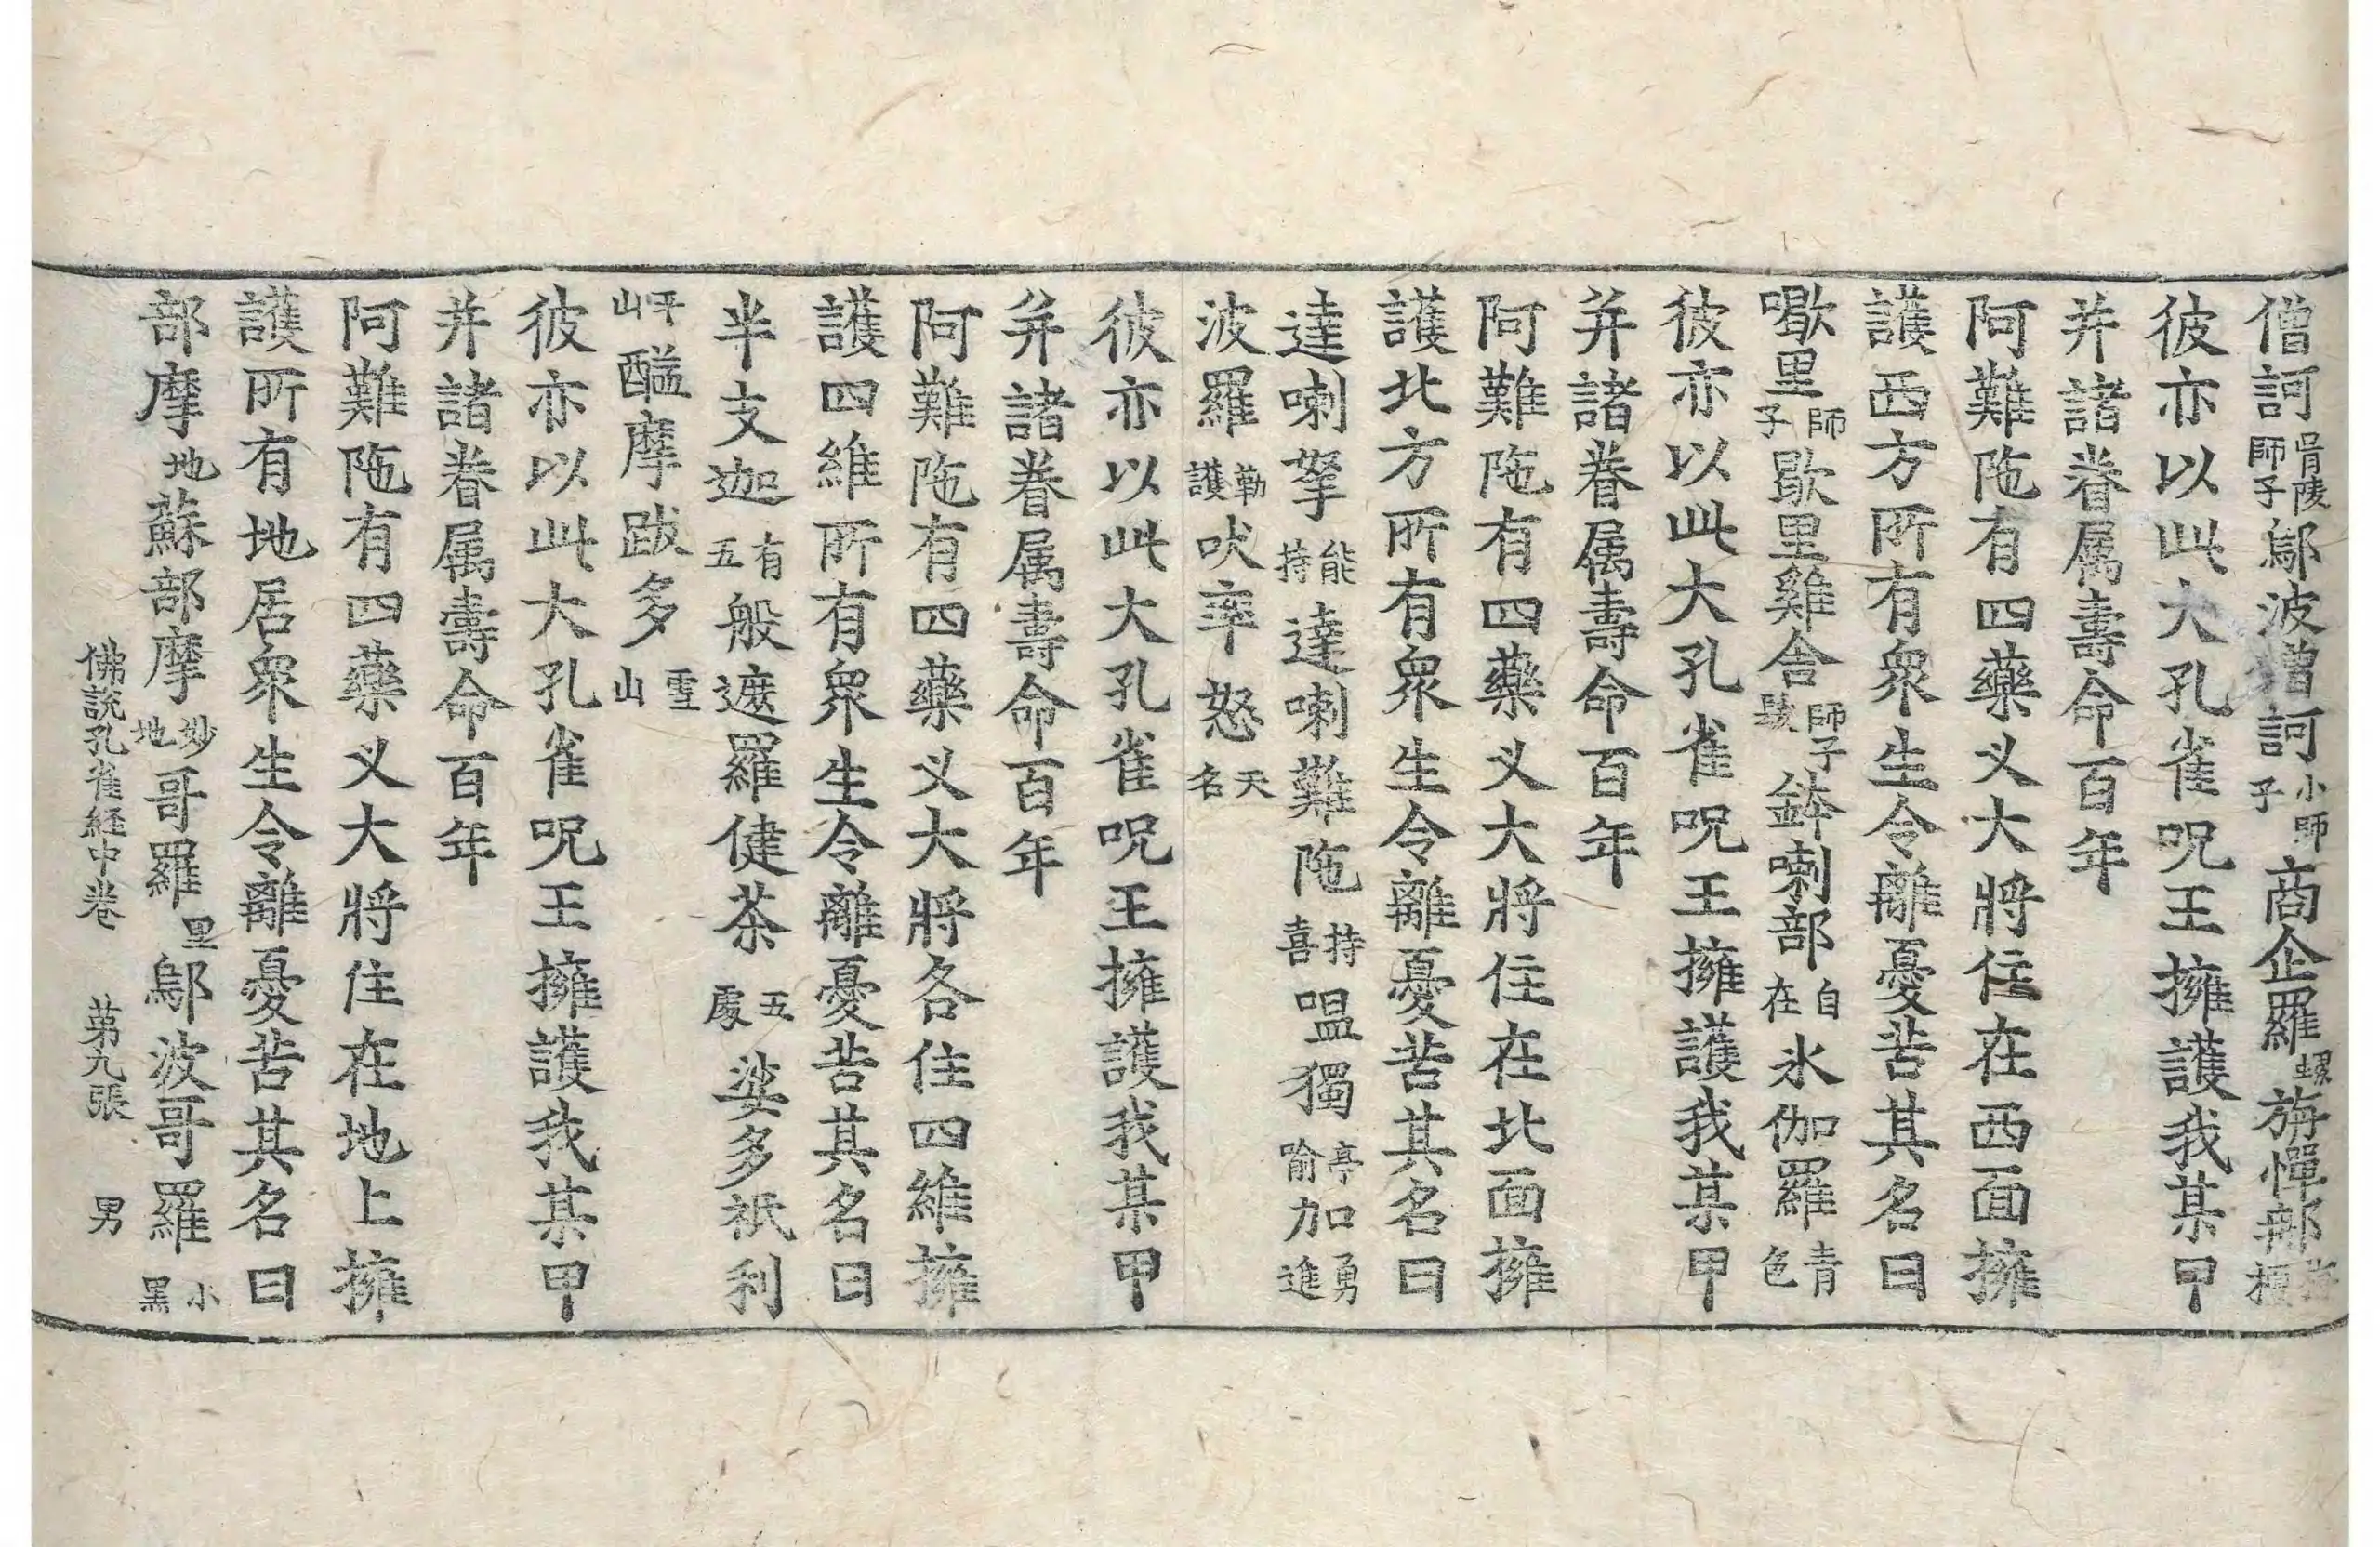 僧訶骨陵師子鄔波僧訶小師子商企羅螺旃憚那旃檀
彼亦以此大孔雀呪王擁護我某甲
并諸眷属壽命百年
阿難陁有四藥叉大將住在西面擁
護西方所有衆生令離憂苦其名曰
㗿里師子歇里雞舍師子髮鉢喇部自在氷伽羅青色
彼亦以此大孔雀呪王擁護我某甲
并諸眷属壽命百年
阿難陁有四藥叉大將住在北面擁
護北方所有衆生令離憂苦其名曰
達喇拏能持達喇難陁持喜嗢獨亭喻加勇進
波羅勒護吠率怒天名
彼亦以此大孔雀呪王擁護我某甲
并諸眷属壽命百年
阿難陁有四藥叉大將各住四維擁
護四維所有衆生令離憂苦其名曰
半支迦有五般遮羅健荼五處娑多祇利
平山醯摩跋多雪山
彼亦以此大孔雀呪王擁護我某甲
并諸眷属壽命百年
阿難陁有四藥叉大將住在地上擁
護所有地居衆生令離憂苦其名曰
部摩地蘇部摩妙地哥羅黑鄔波哥羅小黑
佛說孔雀経中卷 苐九張 男